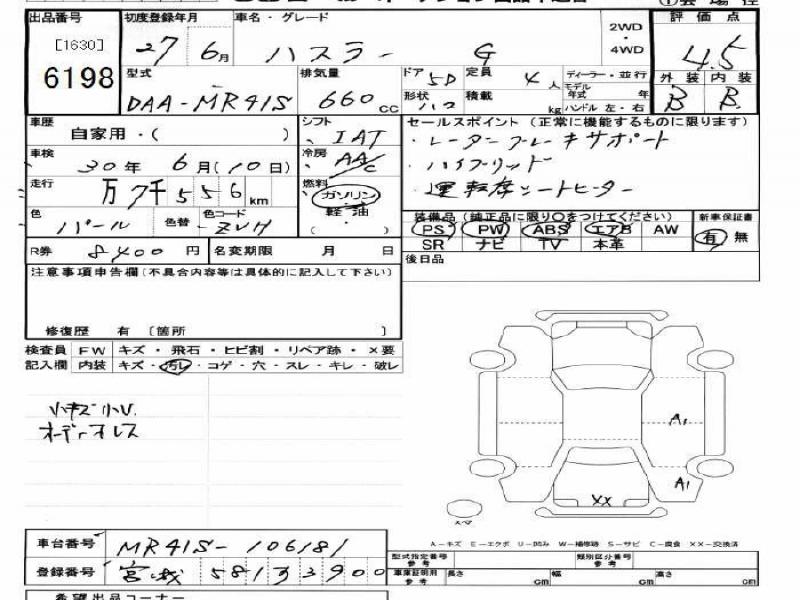 出品番号 初度登録年月 車名・グレード 評価点
[1630] 27年 6月 ハスラー G 2WD・4WD 4.5
6198 型式 排気量 ドア 5D 定員 4人 ディーラー・並行 外装 内装
DAA-MR41S 660cc 形状 ハコ 積載 kg モデル年式 年 ハンドル 左・右 B B
車歴 自家用・( ) シフト IAT セールスポイント (正常に機能するものに限ります)
車検 30年 6月(10日) 冷房 AAC ・レーダーブレーキサポート
・ハイブリッド
走行 万7千556km 燃料 ガソリン・軽油 ( ) ・運転席シートヒーター
色 パール 色替 色コード ZVH
装備品 (純正品に限り○をつけてください) 新車保証書
PS PW ABS エアB AW 有 無
R券 8400円 名変期限 月 日 SR ナビ TV 本革
注意事項申告欄 (不具合内容等は具体的に記入して下さい) 後日品
修復歴 有 [箇所 ]
検査員 FW キズ・飛石・ヒビ割・リペア跡・×要
記入欄 内装 キズ・汚レ・コゲ・穴・スレ・キレ・破レ
小キズ小U.
オーディオレス
A1
A1
XX
スペア
A-キズ E-エクボ U-凹み W-補修跡 S-サビ C-腐食 XX-交換済
車台番号 MR41S-106181
型式指定番号 参考 類別区分番号 参考
登録番号 宮城 581 3900
車庫証明用 参考 長さ cm 幅 cm 高さ cm
希望出品コーナー